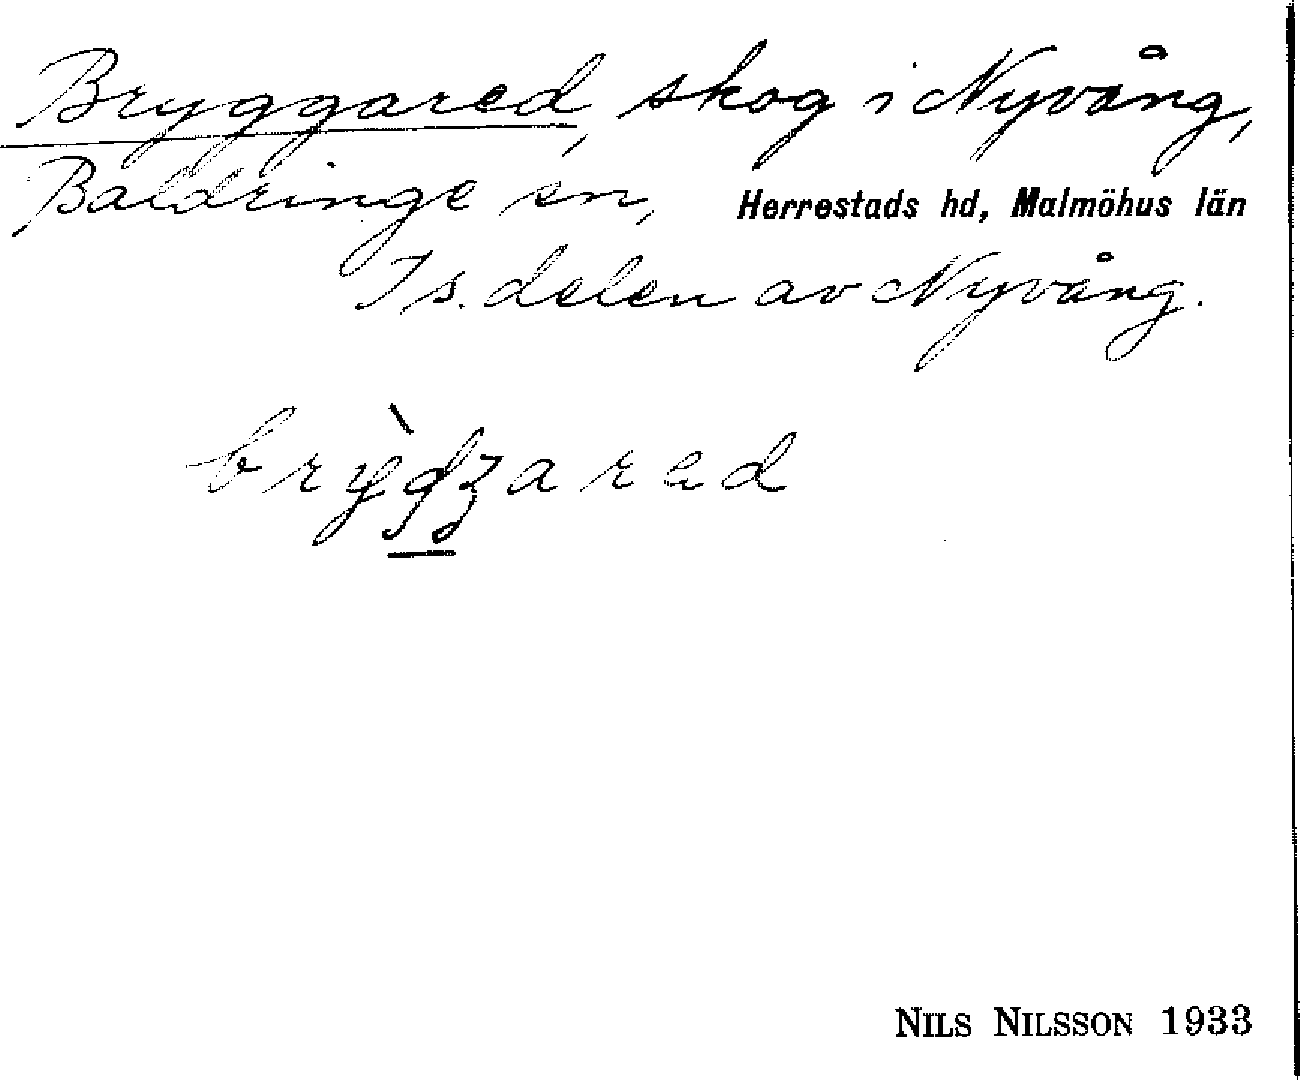 Bryggared, skog i Nyvång,
Baldringe sn, Herrestads hd, Malmöhus län
I s. delen av Nyvång.
brỳdʒared
NILS NILSSON 1933